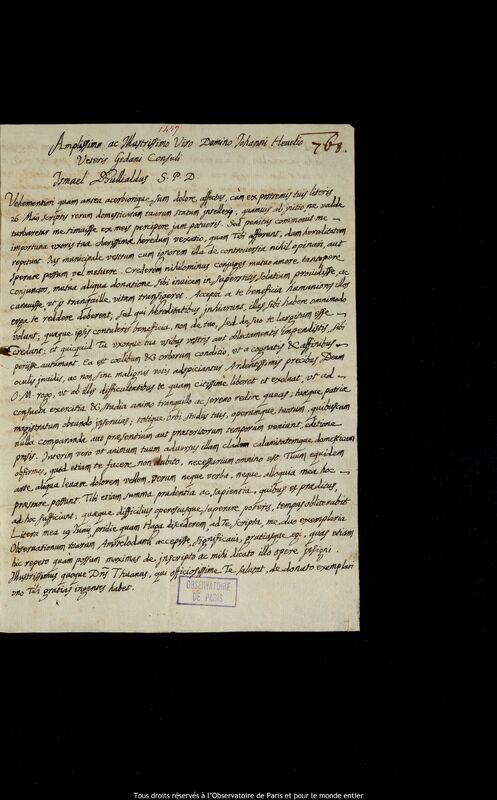 1457
768.
Amplissimo ac Illustrissimo Viro Domino Johanni Hevelio
Veteris Gedani Consuli
Ismael Bullialdus S. P. D.
Vehementiori quam antea, acerbiorique, sum dolore affectus, cum ex postremis tuis literis
26 Maii scriptis rerum domesticarum tuarum statum intellexi, quamuis ab initio ne valde
turbareris me timuisse ex meis percipere jam potueris. Sed penitus commouit me
importuna uxoris tuæ charissimæ heredum vexatio, quam Tibi afferunt, dum hereditatem
repetunt. Jus municipale vestrum cum ignorem illa de controuersia nihil opinari, aut
sperare possum vel metuere. Crederem nihilominus conjuges mutuo amore tantopere
conjunctos, mutua aliqua donatione, sibi inuicem in superstitis solatium prouidisse, ac
cauisse, ut is tranquille vitam transigeret. Accepta a te beneficia humaniores illos
erga te reddere deberent; sed qui hereditatibus inhiarunt, illas sibi habere omnimodo
volunt; quæque ipsis contuleris beneficia, non de tuo, sed de suo te largitum esse
credunt, et quicquid Tu uxorque tua usibus vestris aut oblectamentis impendistis, sibi
periisse autimant. Ea est cœlibum & orborum conditio, ut a cognatis & affinibus
oculis inuidis, ac non sine malignis votis adspiciantur. Ardentissimis precibus Deum
O. M. rogo, ut ab illis difficultatibus te quam citissime liberet et exoluat, ut ad
consueta exercitia & studia animo tranquillo ac sereno redire queas; tuæque patriæ
magistratum obeundo inseruias; totique orbi studiis tuis, operumque tuorum, quibuscum
nulla comparanda aut præsentium aut præteritorum temporum veniunt, editione
prosis. Interim vero ut animum tuum aduersus illam cladem calamitatemque domesticam
obfirmes, quod etiam te facere non dubito, necessarium omnino est. Tuum equidem
ante aliqua lenare dolorem vellem, verum neque verba, neque alloquia mea hoc
præstare possunt. Tibi etiam summa prudentia ac sapientia, quibus es præditus,
ad hoc sufficiunt, quæque difficulter operosusque superare poteris, tempus obliterabit.
Litera mea 19 Junii, pridie quam Haga discederem ad Te scripta, me duo exemplaria
Obseruationum tuarum Amstelodami accepisse significaui, gratiasque egi, quas etiam
hic repeto quam possum maximas de inscripto ac mihi dicato illo opere insigni.
Illustrissimus quoque Dns Thuanus, qui officiosissime Te salutat, de donato exemplari
uno Tibi gratias ingentes habet.
OBSERVATOIRE
DE PARIS
Tous droits réservés à l'Observatoire de Paris et pour le monde entier